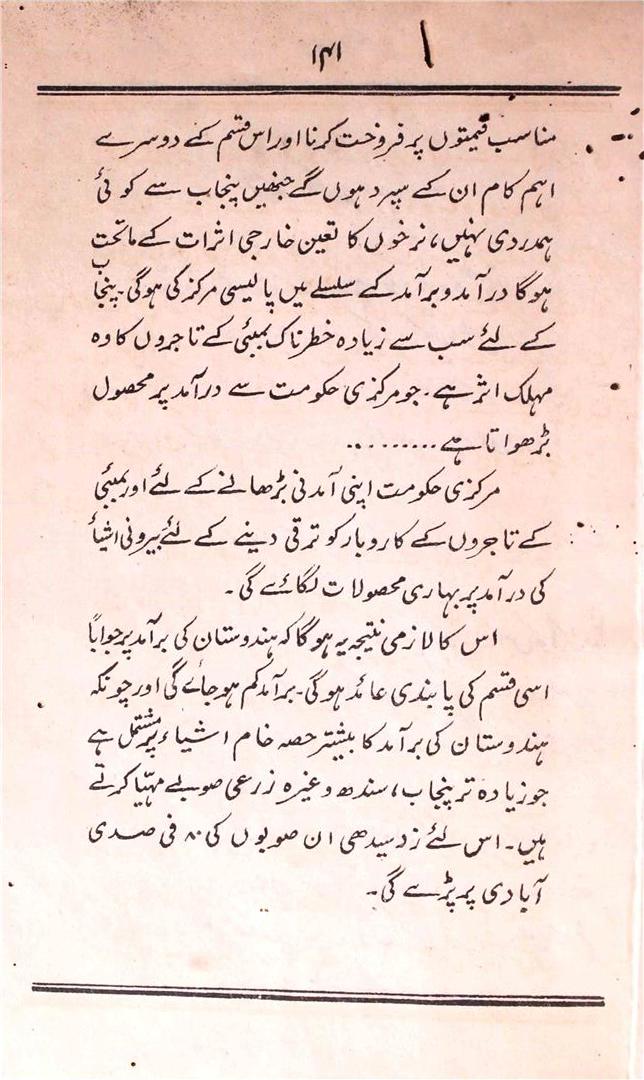 ۱۴۱
مناسب قیمتوں پر فروخت کرنا اور اس قسم کے دوسرے
اہم کام ان کے سپرد ہوں گے جنھیں پنجاب سے کوئی
ہمدردی نہیں، نرخوں کا تعین خارجی اثرات کے ماتحت
ہوگا درآمد و برآمد کے سلسلے میں پالیسی مرکز کی ہوگی۔ پنجاب
کے لئے سب سے زیادہ خطرناک بمبئی کے تاجروں کا وہ
مہلک اثر ہے۔ جو مرکزی حکومت سے درآمد پر محصول
بڑھواتا ہے.........
مرکزی حکومت اپنی آمدنی بڑھانے کے لئے اور بمبئی
کے تاجروں کے کاروبار کو ترقی دینے کے لئے بیرونی اشیأ
کی درآمد پر بھاری محصولات لگائے گی۔
اس کا لازمی نتیجہ یہ ہوگا کہ ہندوستان کی برآمد پر جواباً
اسی قسم کی پابندی عائد ہوگی۔ برآمد کم ہو جائے گی اور چونکہ
ہندوستان کی برآمد کا بیشتر حصہ خام اشیاء پر مشتمل ہے
جو زیادہ تر پنجاب، سندھ وغیرہ زرعی صوبے مہیّا کرتے
ہیں۔ اس لئے زد سیدھی ان صوبوں کی ۸۰ فی صدی
آبادی پر پڑے گی۔